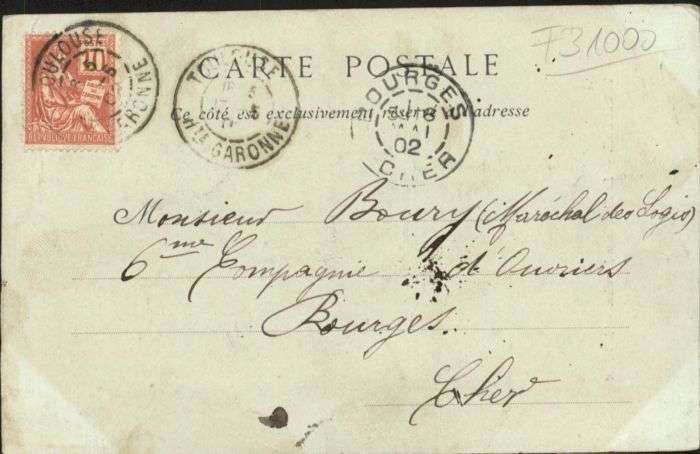 F31000
CARTE POSTALE
Ce côté est exclusivement réservé à l'adresse
TOULOUSE
GARONNE
10
REPUBLIQUE FRANÇAISE
TOULOUSE
Hte GARONNE
BOURGES
MAI
02
CHER
Monsieur Boury (Maréchal des Logis)
6me Compagnie d'Ouvriers
Bourges
Cher